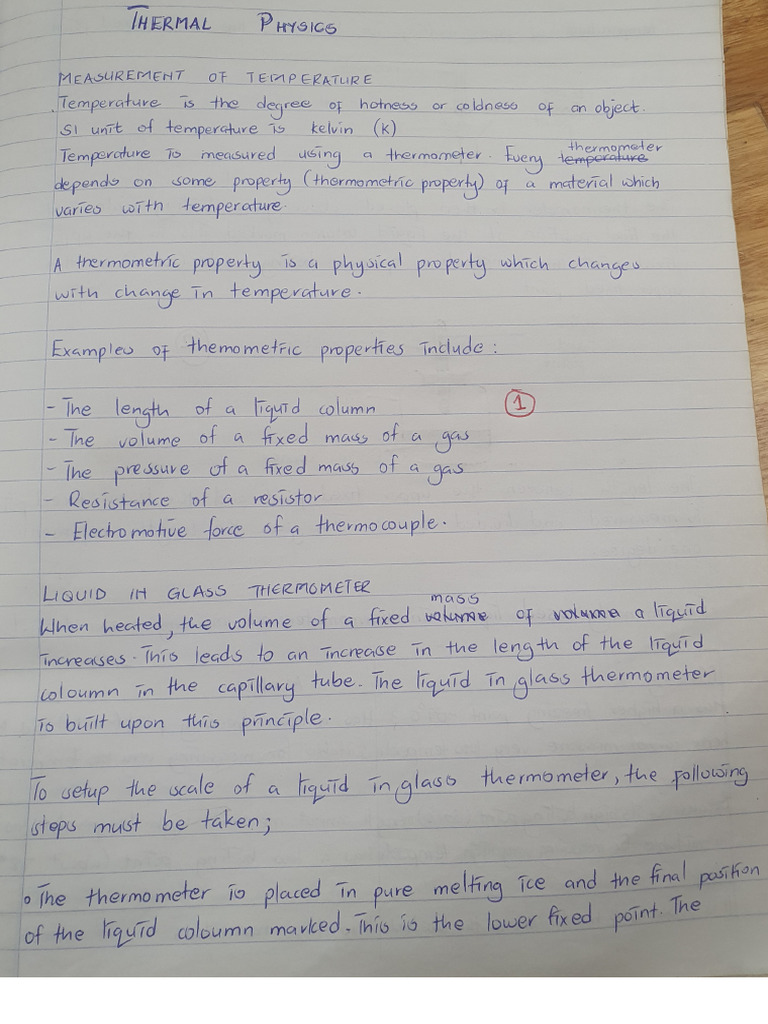 THERMAL PHYSICS
MEASUREMENT OF TEMPERATURE
Temperature is the degree of hotness or coldness of an object.
SI unit of temperature is kelvin (K)
Temperature is measured using a thermometer. Every temperature thermometer
depends on some property (thermometric property) of a material which
varies with temperature.
A thermometric property is a physical property which changes
with change in temperature.
Examples of themometric properties include:
- The length of a liquid column
1
- The volume of a fixed mass of a gas
- The pressure of a fixed mass of a gas
- Resistance of a resistor
- Electromotive force of a thermocouple.
LIQUID IN GLASS THERMOMETER
When heated, the volume of a fixed volume mass of volume a liquid
increases. This leads to an increase in the length of the liquid
coloumn in the capillary tube. The liquid in glass thermometer
is built upon this principle.
To setup the scale of a liquid in glass thermometer, the following
steps must be taken;
• The thermometer is placed in pure melting ice and the final position
of the liquid coloumn marked. This is the lower fixed point. The